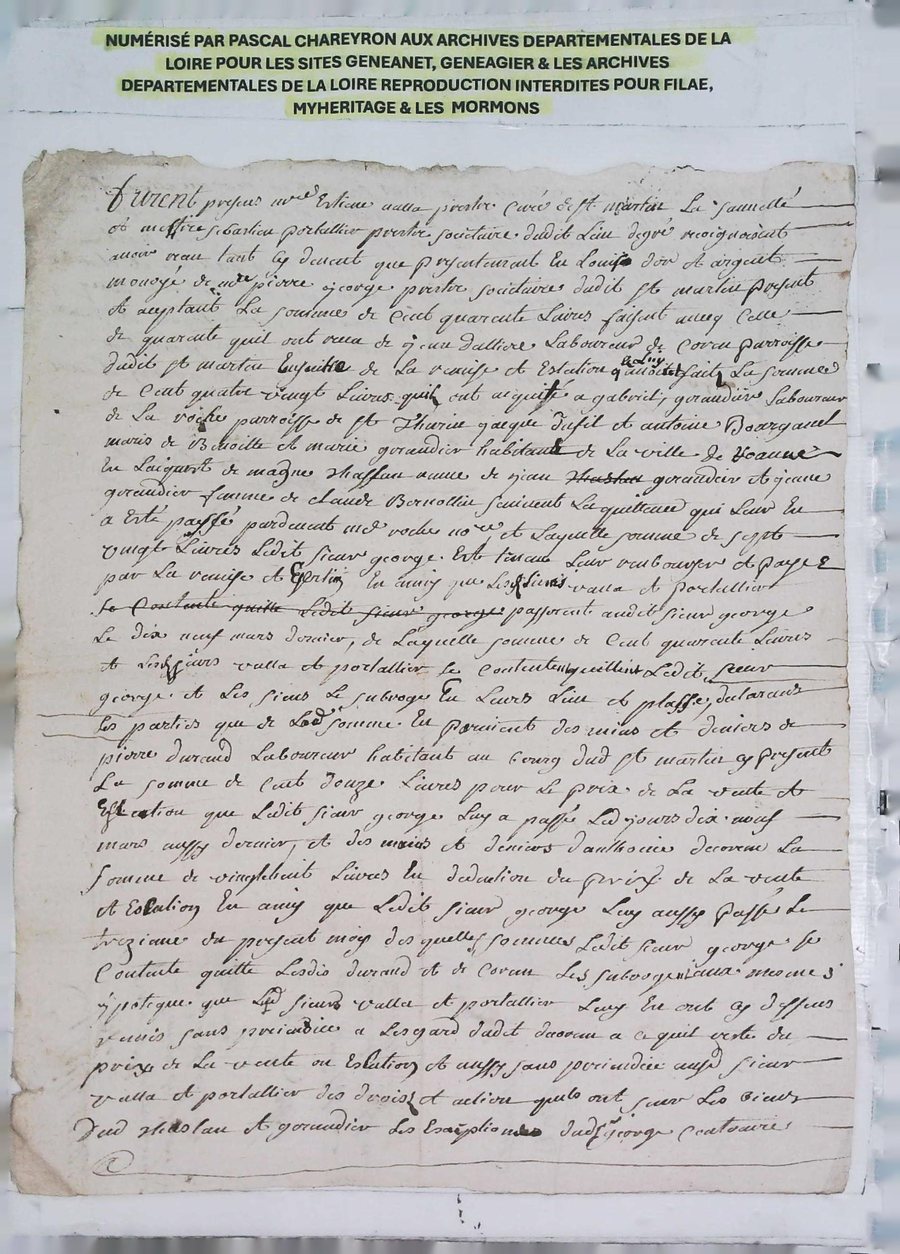 NUMÉRISÉ PAR PASCAL CHAREYRON AUX ARCHIVES DEPARTEMENTALES DE LA
LOIRE POUR LES SITES GENEANET, GENEAGIER & LES ARCHIVES
DEPARTEMENTALES DE LA LOIRE REPRODUCTION INTERDITES POUR FILAE,
MYHERITAGE & LES MORMONS
furent presens Estiene valla prestre curé de st martin La sauuetté
et messire sebastien portallier prestre societaire dudit Lieu degré recognoissent
auoir receu tant cy deuent que presentement En Louis dor et argent
monoyé de mre pierre george prestre societaire dudit st martin present
et aceptant La somme de Cent quarente Liures faisant auecq Celle
de quarente quil ont receu de Laboureur de parroisse
dudit st martin Ensuitte de La remise et Eslation faitz La somme
de Cent quatre vingt Liures quil ont aquitté a gabriel girandier Laboureur
de La roche parroisse de st Thurin et antoine
maris de Benoitte et marie girandier habitant de La ville de Roanne
En Laiquest de de jean girandier et jeane
girandier femme de claude La quittance qui Leur En
a Esté passé pardeuent roche nore et Laquelle somme de sept
vingtz Liures Ledit sieur george Este tenu Leur rembourser et payer
par La remise et En amis que Les sieurs valla et portallier
se Contente quitte Ledit sieur george passerent audit sieur george
Le dix neuf mars dernier, de Laquelle somme de Cent quarente Liures
et Lesd sieurs valla et portallier se Contentent quittent Ledit sieur
george et Les siens Le subroge En Leurs Lieu et plasse, declarans
Les parties que de Lad somme En des mains et deniers de
pierre durand Laboureur habitant au bourg dud st martin cy present
La somme de Cent douze Liures pour Le prix de La vente et
Eslation que Ledit sieur george Luy a passé Led jours dix neuf
mars aussy dernier, et des mains et deniers danthoine decoran La
somme de vingthuit Liures En deduction du prix de La vente
et Eslation En amis que Ledit sieur george Luy aussy passé Le
treziame du present mois des quelles sommes Ledit sieur george se
Contente quitte Lesdis durand et de Coran Les subroge aux mesmes
ypotique que Les sieurs valla et portallier Luy En ont cy dessus
remis sans preiudice a Lesgard dudit decoran a ce quil reste du
prix de La vente ou Eslation et aussy sans preiudice ausd sieur
valla et portallier des droist et action quils ont sur Les biens
dud et girandier Les Exceptions dud sr george Contraires